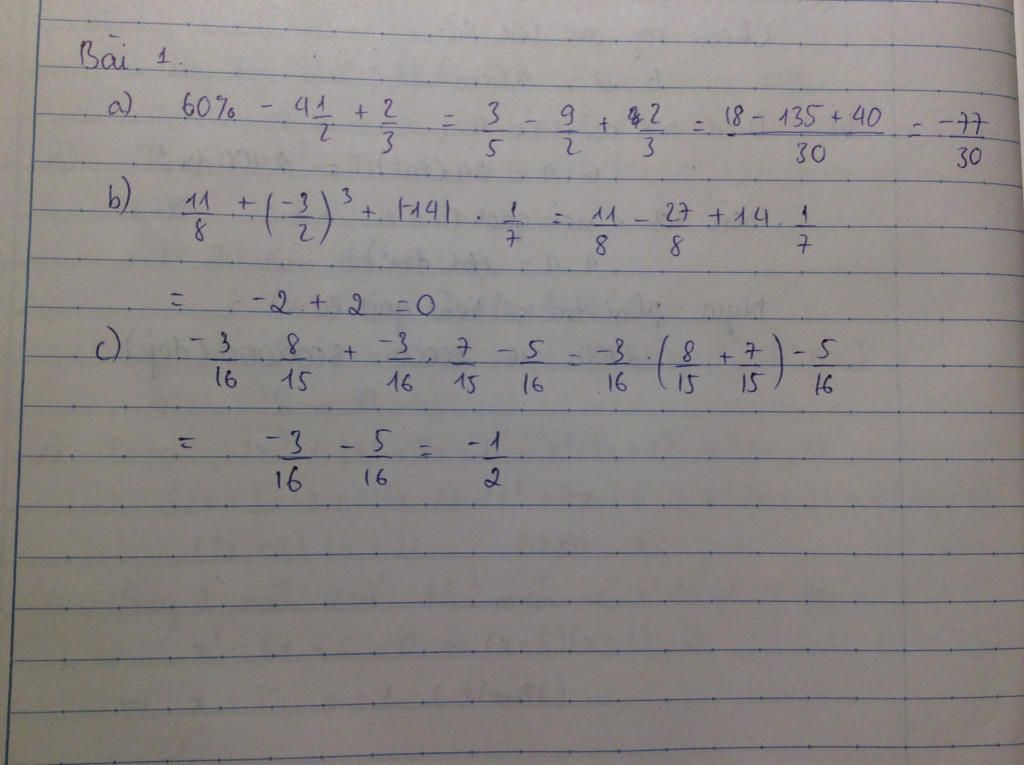 Bài 1.
a) 60% - 4 1/2 + 2/3 = 3/5 - 9/2 + 2/3 = (18 - 135 + 40)/30 = -77/30
b) 11/8 + (-3/2)³ + |-14| . 1/7 = 11/8 - 27/8 + 14 . 1/7
= -2 + 2 = 0
c) -3/16 . 8/15 + -3/16 . 7/15 - 5/16 = -3/16 . (8/15 + 7/15) - 5/16
= -3/16 - 5/16 = -1/2